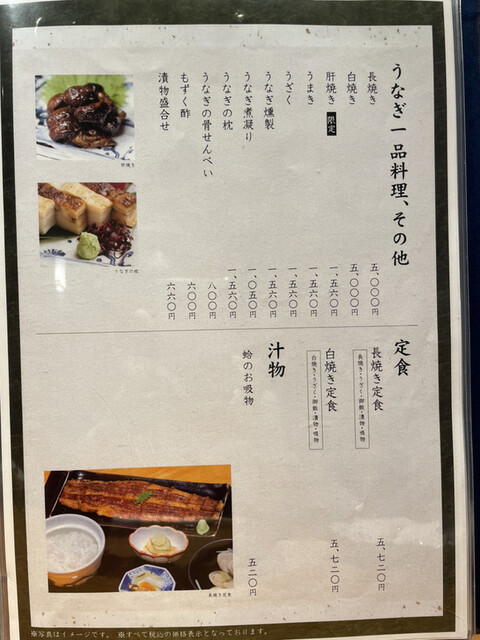 うなぎ一品料理、その他
長焼き 五、〇〇〇円
白焼き 五、〇〇〇円
肝焼き 限定 一、五六〇円
うまき 一、五六〇円
うざく 一、五六〇円
うなぎ燻製 一、五六〇円
うなぎ煮凝り 一、〇五〇円
うなぎの枕 一、五六〇円
うなぎの骨せんべい 八〇〇円
もずく酢 六〇〇円
漬物盛合せ 六六〇円
肝焼き
うなぎの枕
定食
長焼き定食 五、七二〇円
長焼き・うざく・御飯・漬物・吸物
白焼き定食 五、七二〇円
白焼き・うざく・御飯・漬物・吸物
汁物
蛤のお吸物 五二〇円
長焼き定食
※写真はイメージです。 ※すべて税込の価格表示となっております。